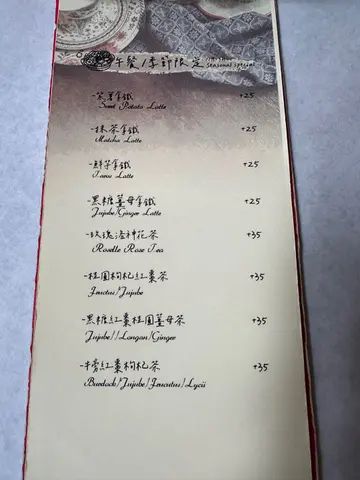 午餐/季節限定
seasonal special
-紫薯拿鐵 +25
Sweet Potato Latte
-抹茶拿鐵 +25
Matcha Latte
-鮮芋拿鐵 +25
Taros Latte
-黑糖薑母拿鐵 +25
Jujube/Ginger Latte
-玫瑰洛神花茶 +35
Roselle Rose Tea
-桂圓枸杞紅棗茶 +35
Fructus/Jujube
-黑糖紅棗桂圓薑母茶 +35
Jujube//Longan/Ginger
-牛蒡紅棗枸杞茶 +35
Burdock/Jujube/Fructus/Lycii